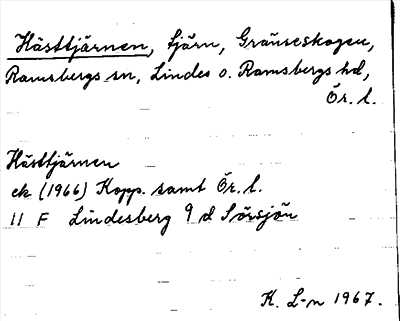 Hästtjärnen, tjärn, Gränsskogen,
Ramsbergs sn, Lindes o. Ramsbergs hd,
Ör. l.
Hästtjärnen
ek (1966) Kopp. samt Ör. l.
11 F Lindesberg 9 d Sörsjön
K. L-n 1967.